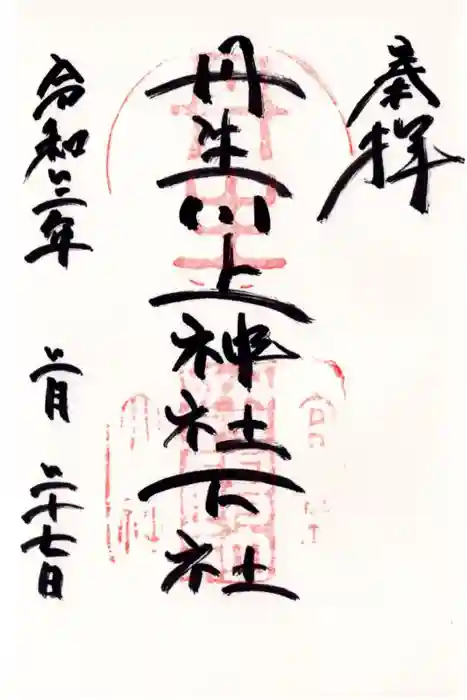 奉拝
丹生川上神社下社
令和三年 二月 二十七日